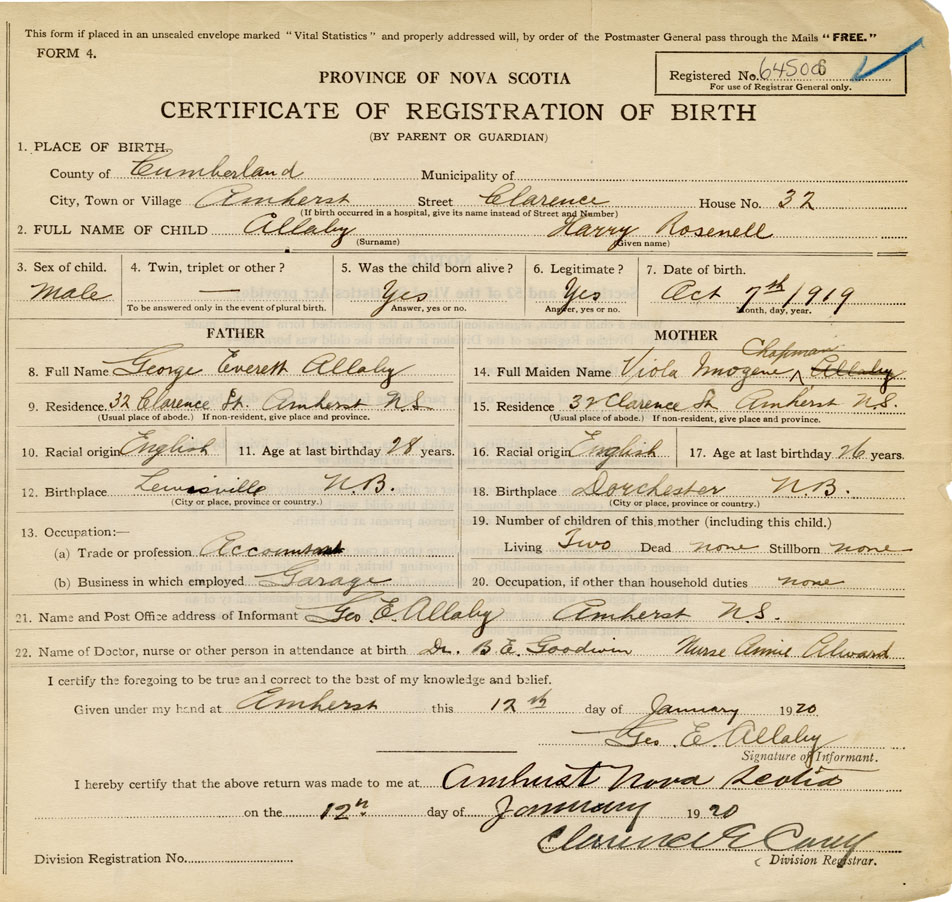 This form if placed in an unsealed envelope marked "Vital Statistics" and properly addressed will, by order of the Postmaster General pass through the Mails "FREE."
FORM 4.
Registered No. 64500
For use of Registrar General only.
PROVINCE OF NOVA SCOTIA
CERTIFICATE OF REGISTRATION OF BIRTH
(BY PARENT OR GUARDIAN)
1. PLACE OF BIRTH.
County of Cumberland Municipality of
City, Town or Village Amherst Street Clarence House No. 32
(If birth occurred in a hospital, give its name instead of Street and Number)
2. FULL NAME OF CHILD Allaby Harry Rosenell
(Surname) (Given name)
3. Sex of child. 4. Twin, triplet or other? 5. Was the child born alive? 6. Legitimate? 7. Date of birth.
Male — Yes Yes Oct 7th/1919
To be answered only in the event of plural birth. Answer, yes or no. Answer, yes or no. Month, day, year.
FATHER MOTHER
Chapman
8. Full Name George Everett Allaby 14. Full Maiden Name Viola Imogene Allaby
9. Residence 32 Clarence St. Amherst N.S. 15. Residence 32 Clarence St Amherst N.S.
(Usual place of abode.) If non-resident, give place and province. (Usual place of abode.) If non-resident, give place and province.
10. Racial origin English 11. Age at last birthday 28 years. 16. Racial origin English 17. Age at last birthday 26 years.
12. Birthplace Lewisville N.B. 18. Birthplace Dorchester N.B.
(City or place, province or country.) (City or place, province or country.)
13. Occupation:— 19. Number of children of this mother (including this child.)
(a) Trade or profession Accountant Living Two Dead none Stillborn none
(b) Business in which employed Garage 20. Occupation, if other than household duties none
21. Name and Post Office address of Informant Geo E. Allaby Amherst N.S.
22. Name of Doctor, nurse or other person in attendance at birth Dr. B.E. Goodwin Nurse Annie Alward
I certify the foregoing to be true and correct to the best of my knowledge and belief.
Given under my hand at Amherst this 12th day of January 1920
Geo E. Allaby
Signature of Informant.
I hereby certify that the above return was made to me at Amherst Nova Scotia
on the 12th day of January 1920
Clarence E Casey
Division Registration No. Division Registrar.